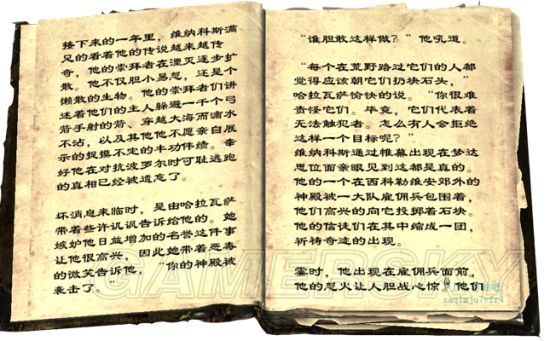 接下来的一年里，维纳科斯满
足的看着他的传说越来越传
奇，他的崇拜者在湮灭逐步扩
散。他不仅胆小易怒，还是个
懒散的生物。他的崇拜者们讲
述着他们的主人躲避一千个弓
箭手射的箭、穿越大海而滴水
不沾，以及其他他不愿亲自展
示的捉摸不定的丰功伟绩。幸
好他在对抗波罗尔时可耻逃跑
的真相已经被遗忘了。
坏消息来临时，是由哈拉瓦萨
带着些许讥讽告诉给他的。她
嫉妒他日益增加的名誉这件事
让他很高兴，因此她带着恶毒
的微笑告诉他，“你的神殿被
袭击了。”
“谁胆敢这样做？”他吼道。
“每个在荒野路过它们的人都
觉得应该朝它们扔块石头，”
哈拉瓦萨愉快的说。“你很难
责怪它们。毕竟，它们代表着
无法触犯者。怎么有人会拒绝
这样一个目标呢？”
维纳科斯通过帷幕出现在梦达
思位面亲眼见到这都是真的。
他的一个在西科勒维安郊外的
神殿被一大队雇佣兵包围着，
他们高兴的向它投掷着石块。
他的信徒们在其中缩成一团，
祈祷奇迹的出现。
霎时，他出现在雇佣兵面前，
他的怒火让人胆战心惊。他们
GAMERSKY
zaqtmju7vfr4